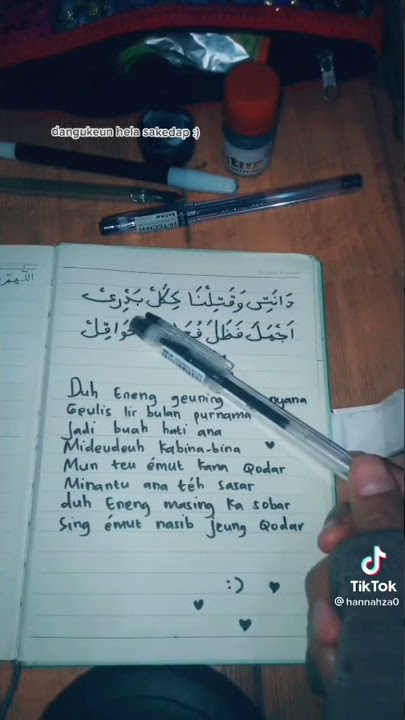 dangukeun hela sakedap :)
دَانَتِيْ وَقَتِلْنَا كِكُلْ بَدْرِيْ
اَجْمَلَ فَظَلَ
Duh Eneng geuning
Geulis lir bulan purnama
Jadi buah hati ana
Mideudeuh kabina-bina
Mun teu émut kana Qodar
Minantu ana téh sasar
duh Eneng masing ka sobar
Sing émut nasib Jeung Qodar
:)
TikTok
@hannahza0